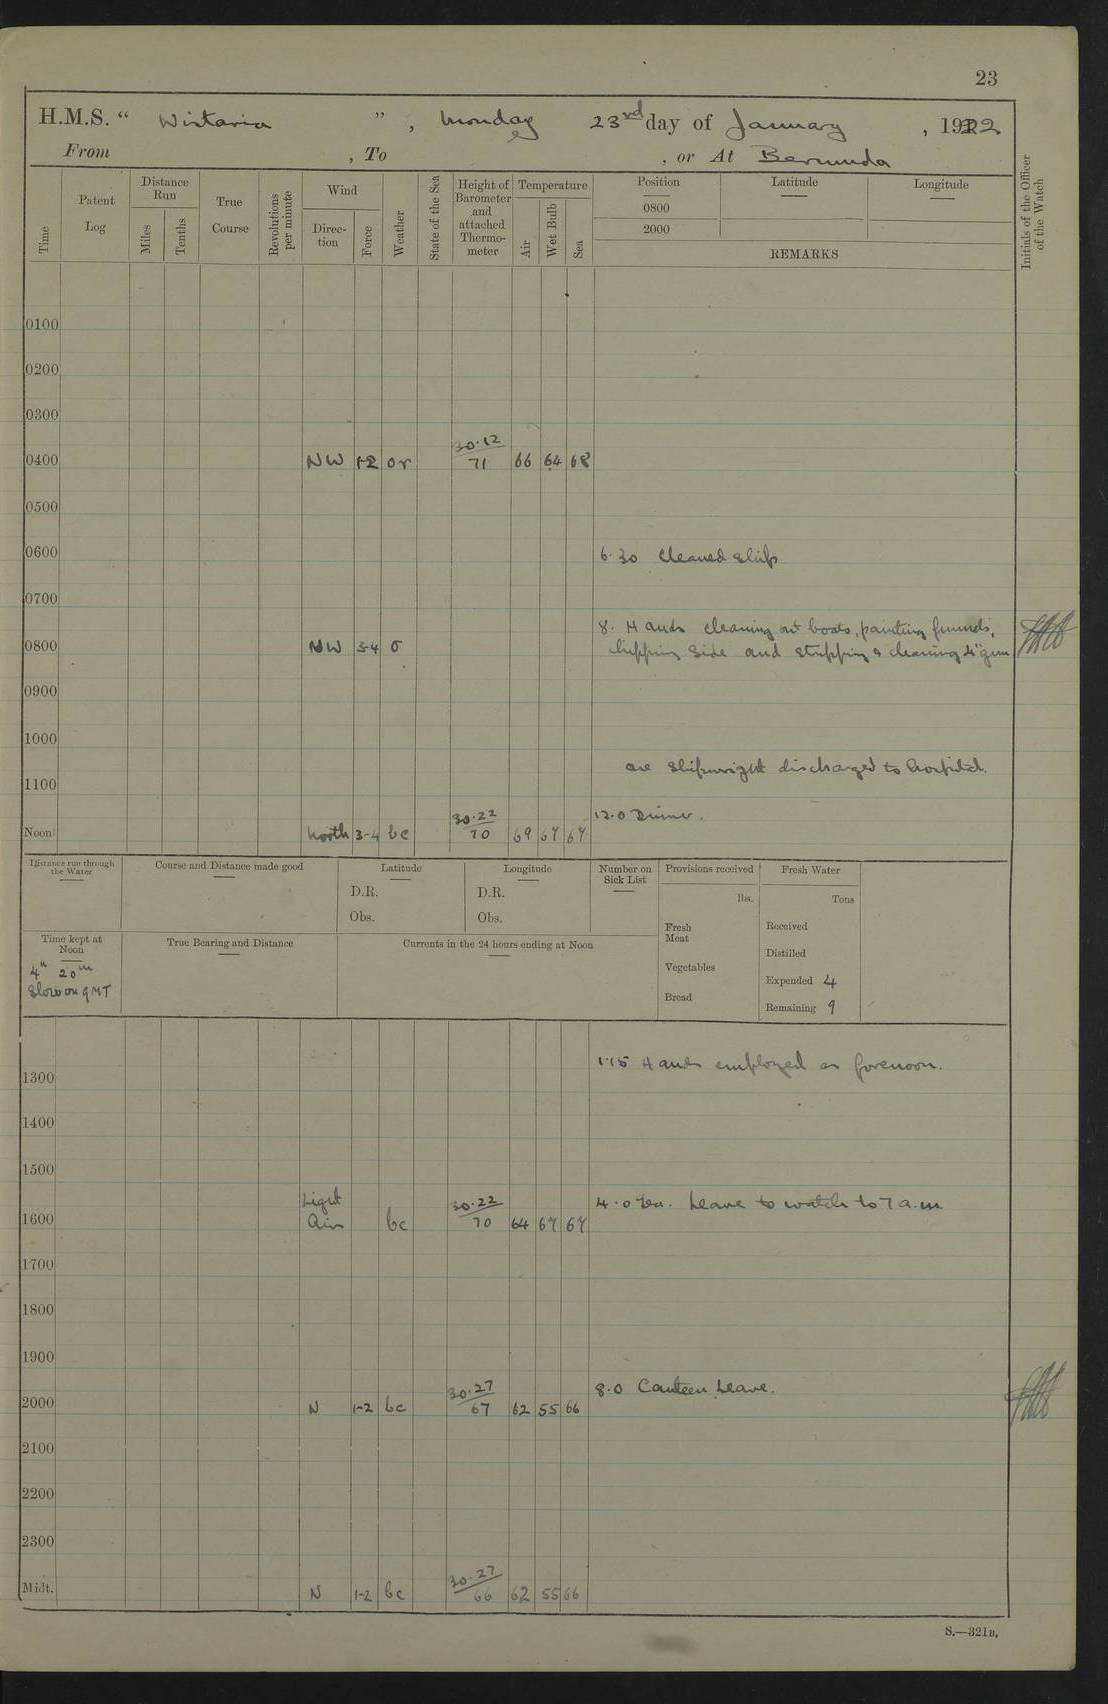 23
H.M.S. " Wistaria ", Monday 23rd day of January, 1922
From , To , or At Bermuda
Time
Patent Log
Distance Run
Miles
Tenths
True Course
Revolutions per minute
Wind
Direction
Force
Weather
State of the Sea
Height of Barometer and attached Thermometer
Temperature
Air
Wet Bulb
Sea
Position
Latitude
Longitude
0800
2000
REMARKS
Initials of the Officer of the Watch
0100
0200
0300
0400 NW 1-2 or 30.12 71 66 64 68
0500
0600 6.30 Cleaned Ship
0700
8. Hands cleaning out boats, painting funnels,
0800 NW 3-4 o chipping Side and stripping & cleaning 4" gun
0900
1000
are Shipwright discharged to hospital.
1100
12.0 Dinner.
Noon North 3-4 bc 30.22 70 69 67 67
Distance run through the Water
Course and Distance made good
Latitude
D.R.
Obs.
Longitude
D.R.
Obs.
Number on Sick List
Provisions received
lbs.
Fresh Meat
Vegetables
Bread
Fresh Water
Tons
Received
Distilled
Expended 4
Remaining 9
Time kept at Noon
4h 20m
Slow on GMT
True Bearing and Distance
Currents in the 24 hours ending at Noon
1.15 Hands employed as forenoon.
1300
1400
1500
4.0 tea. Leave to watch to 7 a.m.
1600 Light Air bc 30.22 70 64 67 67
1700
1800
1900
8.0 Canteen Leave.
2000 N 1-2 bc 30.27 67 62 55 66
2100
2200
2300
Midt. N 1-2 bc 30.27 66 62 55 66
S.—321B.